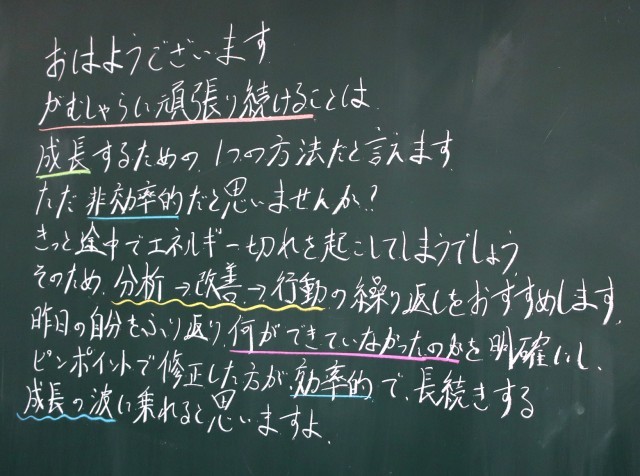 おはようございます
がむしゃらに頑張り続けることは
成長するための、1つの方法だと言えます
ただ非効率的だと思いませんか?
きっと途中でエネルギー切れを起こしてしまうでしょう
そのため、分析→改善→行動の繰り返しをおすすめします。
昨日の自分をふり返り、何ができていなかったのかを明確にし、
ピンポイントで修正した方が、効率的で、長続きする
成長の波に乗れると思いますよ。